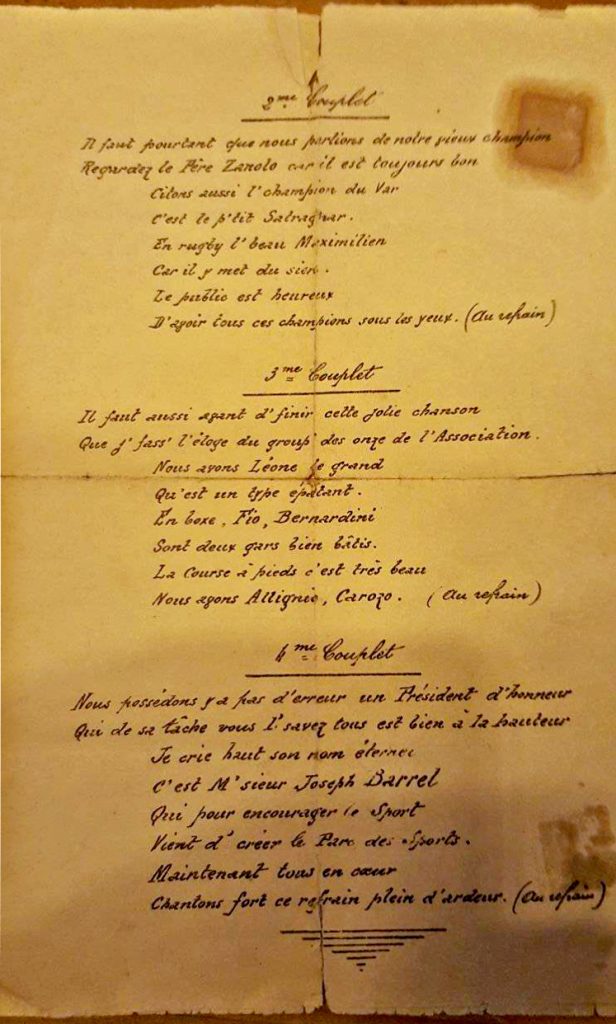 2me Couplet
Il faut pourtant que nous parlions de notre vieux champion
Regardez le Père Zanolo car il est toujours bon
Citons aussi l'champion du Var
C'est le p'tit Salvagnar.
En rugby l'beau Maximilien
Car il y met du sien.
Le public est heureux
D'avoir tous ces champions sous les yeux. (Au refrain)
3me Couplet
Il faut aussi avant d'finir cette jolie chanson
Que j'fass' l'éloge du group' des onze de l'Association.
Nous avons Léone le grand
Qu'est un type épatant.
En boxe, Fio, Bernardini
Sont deux gars bien bâtis.
La Course à pieds c'est très beau
Nous avons Allignié, Carozo. (Au refrain)
4me Couplet
Nous possédons y'a pas d'erreur un Président d'honneur
Qui de sa tâche vous l'savez tous est bien à la hauteur
Je crie haut son nom éternel
C'est M'sieur Joseph Barrel
Qui pour encourager le Sport
Vient d'créer le Parc des Sports.
Maintenant tous en cœur
Chantons fort ce refrain plein d'ardeur. (Au refrain)